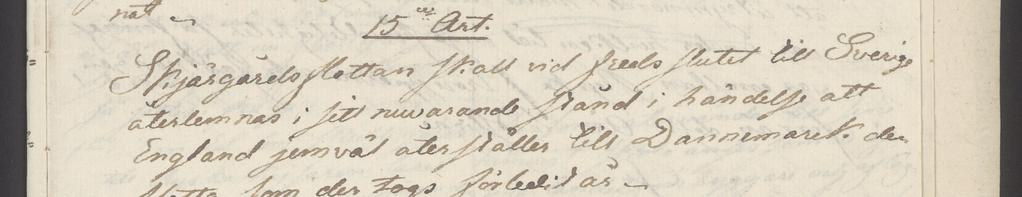 nat –
15de Art.
Skjärgårds flottan skall vid freds slutet till Sverige
återlemnas i sitt nuvarande stånd i händelse att
England jemväl återställer till Dannemarck den
flotta som der togs förledit år –